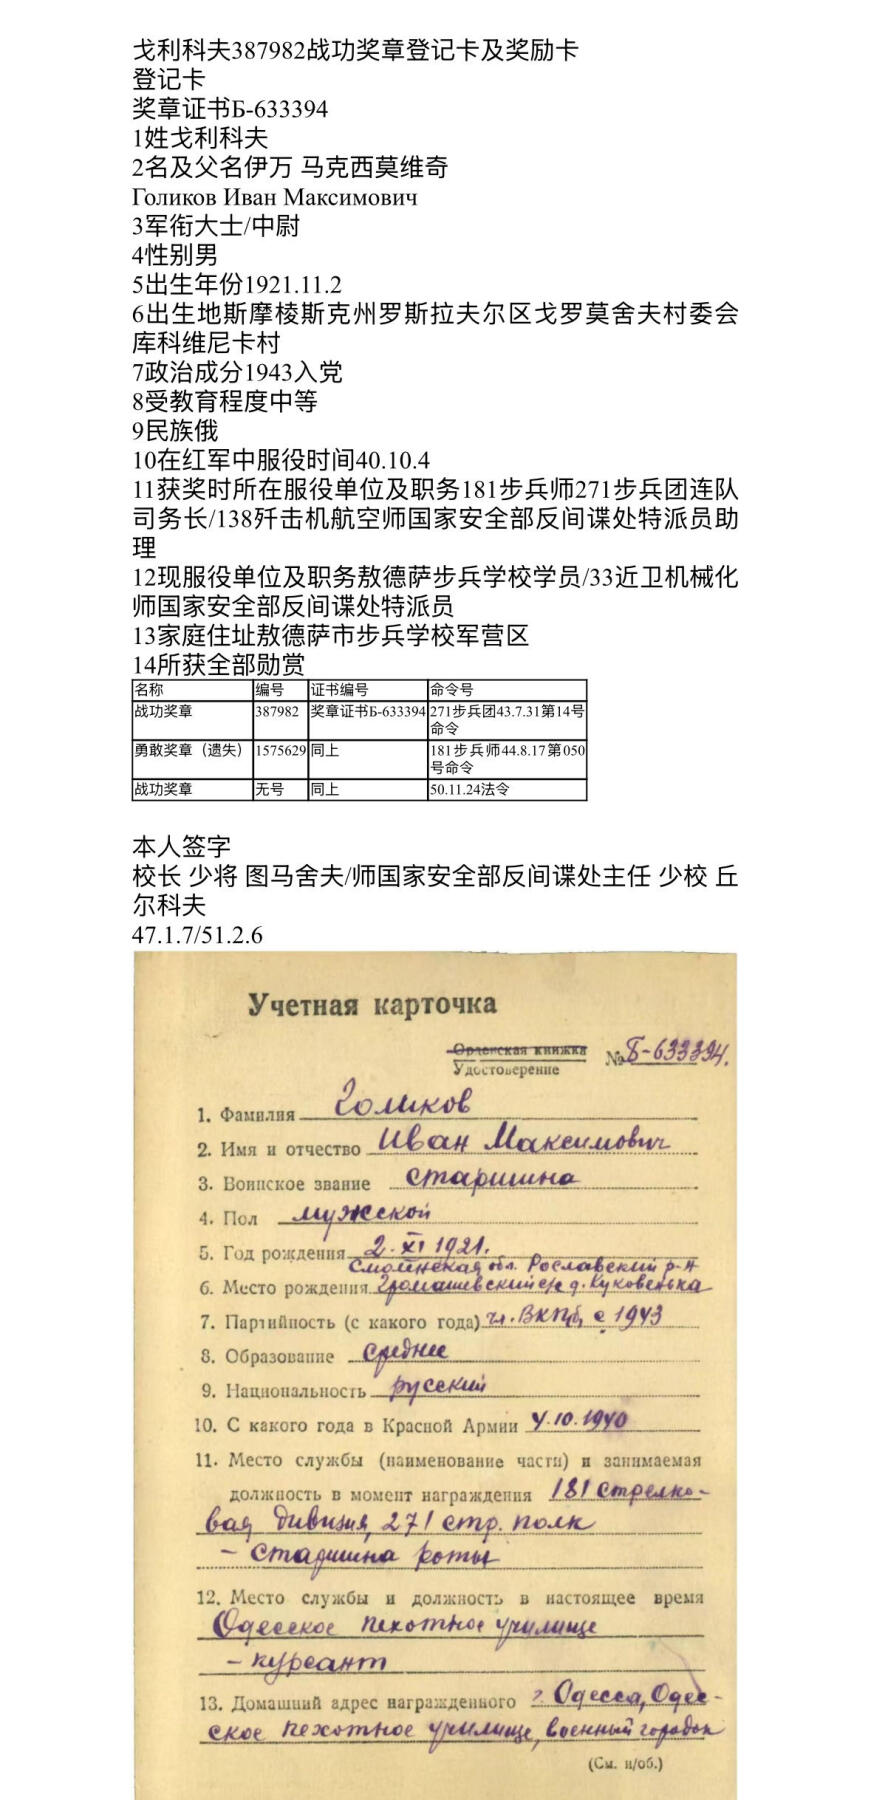 戈利科夫387982战功奖章登记卡及奖励卡
登记卡
奖章证书Б-633394
1姓戈利科夫
2名及父名伊万 马克西莫维奇
Голиков Иван Максимович
3军衔大士/中尉
4性别男
5出生年份1921.11.2
6出生地斯摩棱斯克州罗斯拉夫尔区戈罗莫舍夫村委会
库科维尼卡村
7政治成分1943入党
8受教育程度中等
9民族俄
10在红军中服役时间40.10.4
11获奖时所在服役单位及职务181步兵师271步兵团连队
司务长/138歼击机航空师国家安全部反间谍处特派员助
理
12现服役单位及职务敖德萨步兵学校学员/33近卫机械化
师国家安全部反间谍处特派员
13家庭住址敖德萨市步兵学校军营区
14所获全部勋赏
名称 编号 证书编号 命令号
战功奖章 387982 奖章证书Б-633394 271步兵团43.7.31第14号
命令
勇敢奖章（遗失） 1575629 同上 181步兵师44.8.17第050
号命令
战功奖章 无号 同上 50.11.24法令
本人签字
校长 少将 图马舍夫/师国家安全部反间谍处主任 少校 丘
尔科夫
47.1.7/51.2.6
Учетная карточка
Орденская книжка
Удостоверение № Б-633394.
1. Фамилия Голиков
2. Имя и отчество Иван Максимович
3. Воинское звание старшина
4. Пол мужской
5. Год рождения 2.XI 1921.
Смоленская обл. Рославский р-н
6. Место рождения Громашевский с/с д. Куковенька
7. Партийность (с какого года) чл. ВКПб, с 1943
8. Образование среднее
9. Национальность русский
10. С какого года в Красной Армии 4.10.1940
11. Место службы (наименование части) и занимаемая
должность в момент награждения 181 стрелко-
вая дивизия, 271 стр. полк
- старшина роты
12. Место службы и должность в настоящее время
Одесское пехотное училище
- курсант
13. Домашний адрес награжденного г. Одесса, Одес-
ское пехотное училище, военный городок
(См. н/об.)